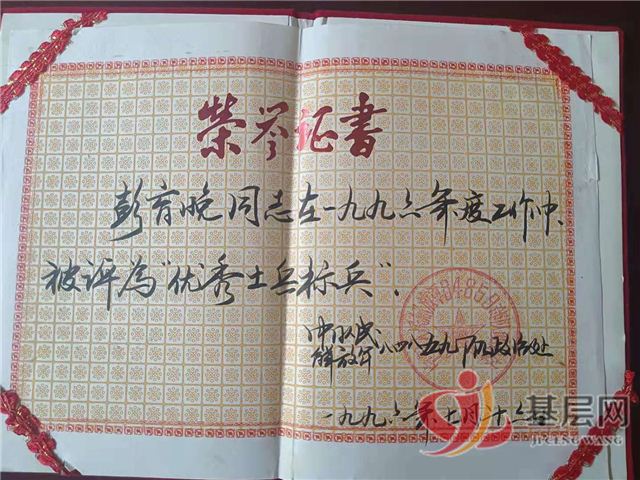 荣誉证书
彭育晚同志在一九九六年度工作中,
被评为“优秀士兵标兵”.
中国人民
解放军八四八五九部队政治处
一九九六年十二月十六日
基层网
JICENG WANG